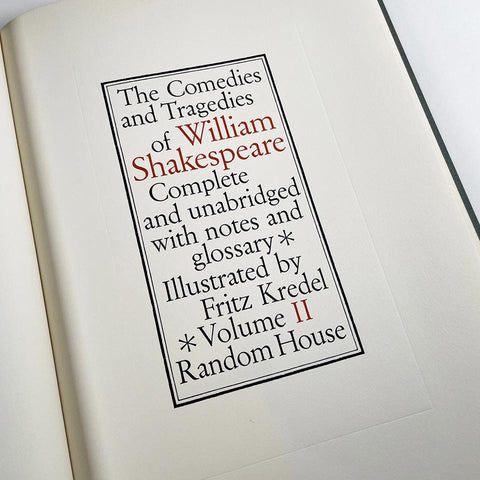 The Comedies
and Tragedies
of William
Shakespeare
Complete
and unabridged
with notes and
glossary *
Illustrated by
Fritz Kredel
* Volume II
Random House